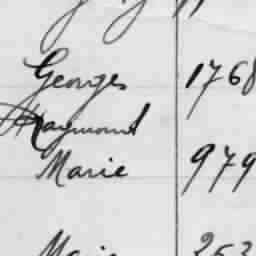 Georges 1768
Raymond
Marie 979
Marie 263